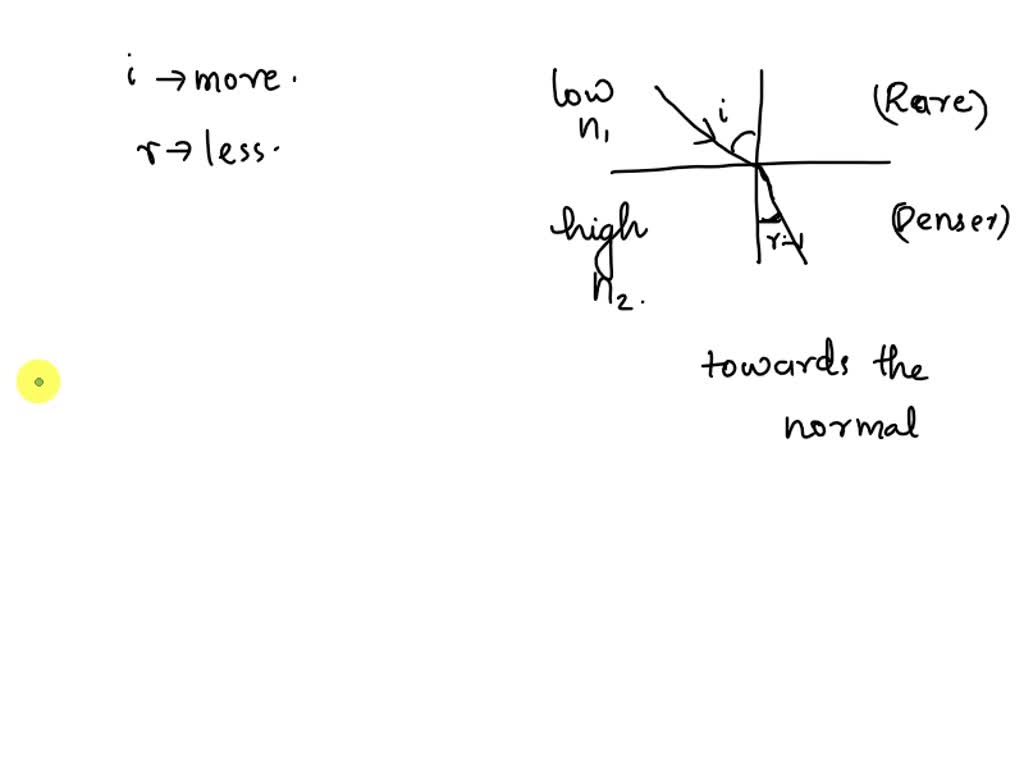 i → more.
r → less.
low
n₁
i
(Rare)
high
n₂.
r
(Denser)
towards the
normal